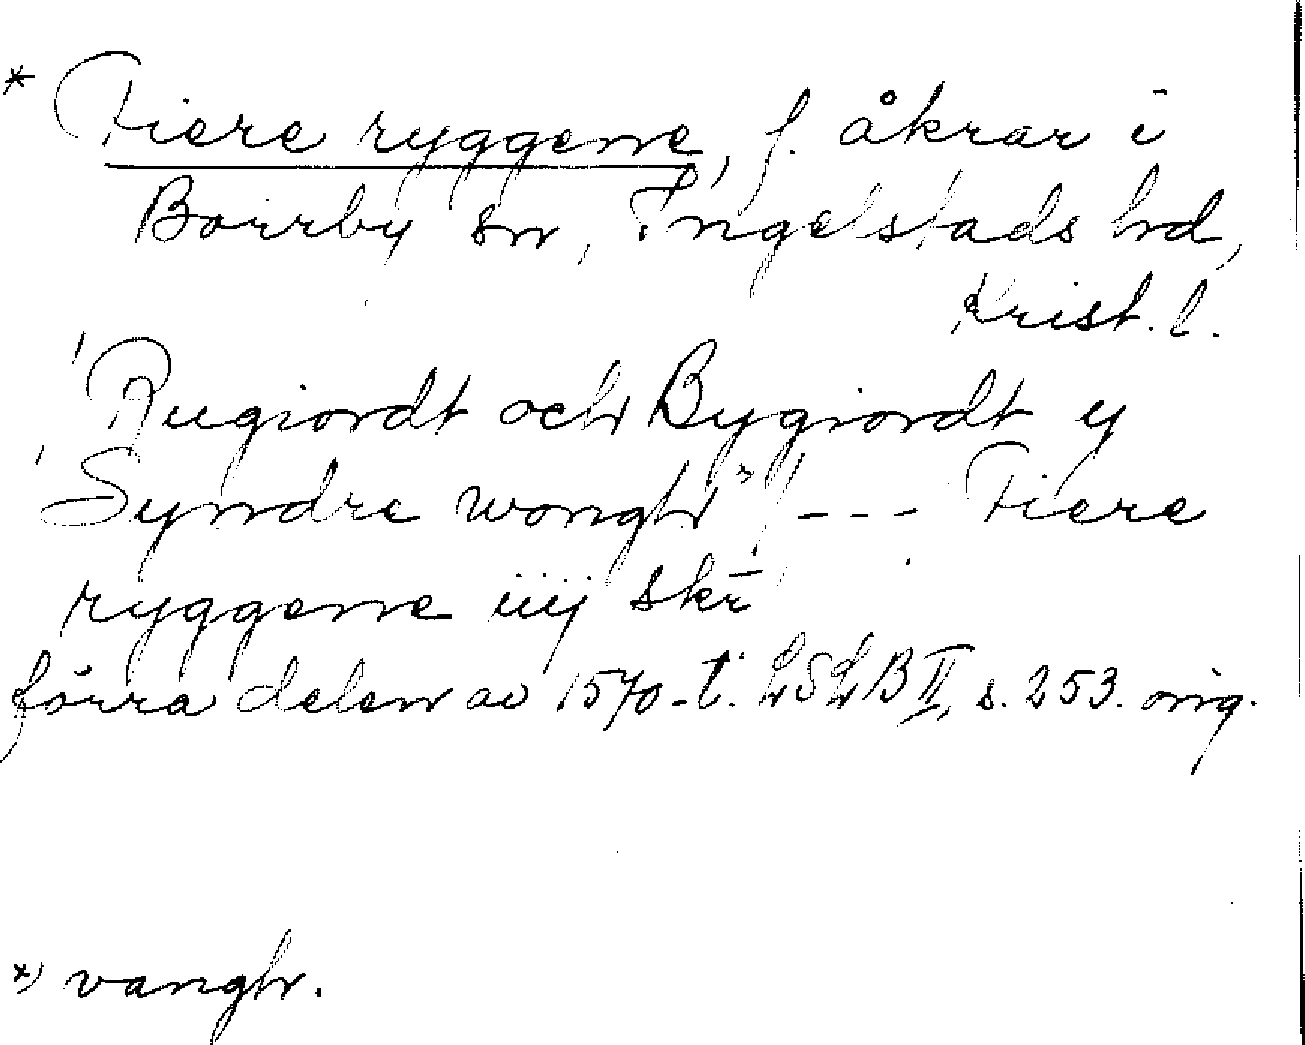 * Fiere ryggene, f. åkrar i
Borrby sn, Ingelstads hd,
Krist. l.
"Rugiordt och Bygiordt y
Syndre wongh*) --- Fiere
ryggene iiij skr
förra delen av 1570-t. LSLB II, s. 253. orig.
*) vangh.